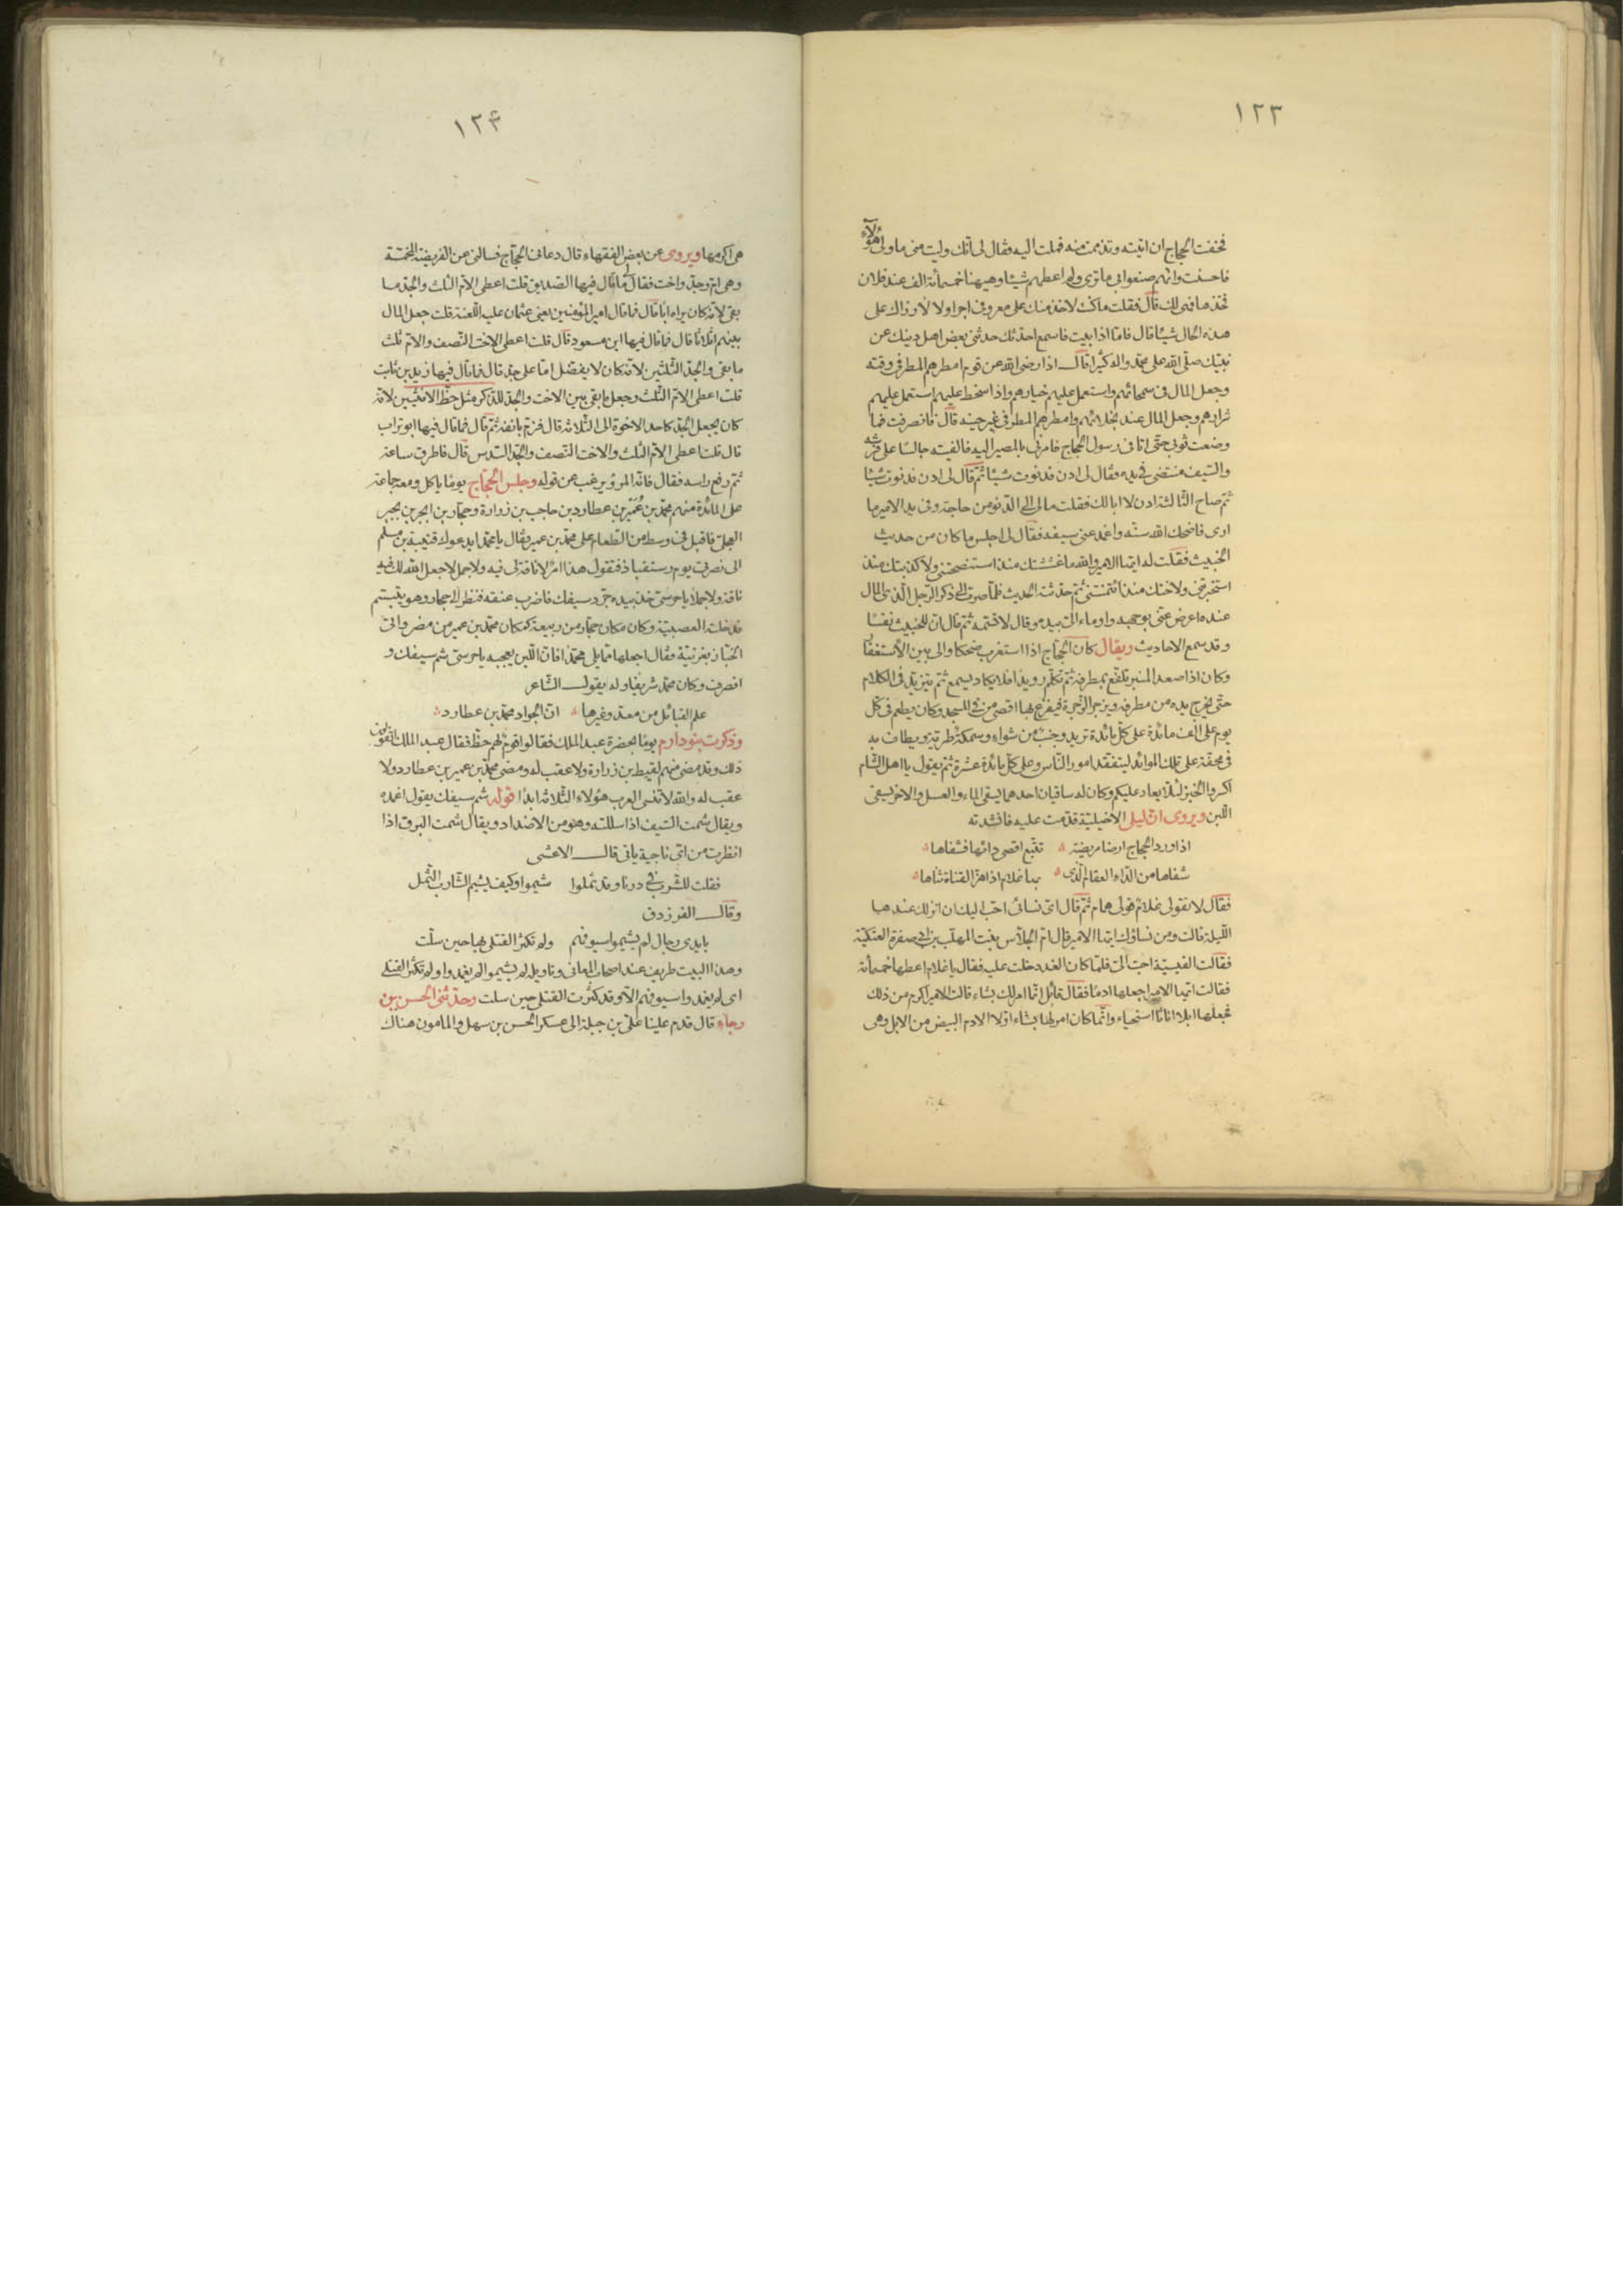 ١٢٣
فخفت الحجاج ان اتيته وتذممت منه فملت اليه فقال لى انك وليت منى ما ولى هؤلاء
فاحسنت وانهم صنعوا بى ما ترى ولم اعطهم شيئا وهيهنا خمسمأة الف عند فلان
فخذها فهى لك قال فقلت ما كنت لاخذ منك على معروفى اجرا ولا لارزاك على
هذه الحال شيئا قال فاما اذا بيت فاسمع احدثك حدثنى بعض اهل دينك عن
نبيك صلّى الله على محمد واله كثيرا قال اذا رضى الله عن قوم امطرهم المطر فى وقته
وجعل المال فى سمحائهم واستعمل عليهم خيارهم واذا سخط عليهم استعمل عليهم
شرارهم وجعل المال عند بخلائهم وامطرهم المطر فى غير حينه قال فانصرفت فما
وضعت ثوبى حتى اتانى رسول الحجاج فامرنى بالمصير اليه فالفيته جالسا على فرشه
والسيف منتضى فى يده فقال لى ادن فدنوت شيئا ثم قال لى ادن فدنوت شيئا
ثم صاح الثالثة ادن لا ابا لك فقلت ما لى الى الدنو من حاجة وفى يد الامير ما
ارى فاضحك الله سنه واغمد عنى سيفه فقال لى اجلس ما كان من حديث
الخبيث فقلت له ايها الامير والله ما غششتك منذ استنصحتنى ولا كذبتك منذ
استخبرتنى ولا خنتك منذ ائتمنتنى ثم حدثته الحديث فلما صرت الى ذكر الرجل الذى المال
عنده اعرض عنى بوجهه واوماء الى بيده وقال لا تسمه ثم قال ان للخبيث نفسا
وقد سمع الاحاديث ويقال كان الحجاج اذا استغرب ضحكا والى بين الاستغفار
وكان اذا صعد المنبر تلفع بمطرفه ثم تكلم رويدا فلا يكاد يسمع ثم يتزيد فى الكلام
حتى يخرج يده من مطرفه ويزجر الزجرة فيفزع بها اقصى من فى المسجد وكان يطعم فى كل
يوم على الف مائدة على كل مائدة ثريد وجنب من شواء وسمكة طرية ويطاف به
فى محفة على تلك الموائد ليتفقد امور الناس وعلى كل مائدة عشرة ثم يقول يا اهل الشام
اكسروا الخبز لئلا يعاد عليكم وكان له ساقيان احدهما يسقى الماء والعسل والاخر يسقى
اللبن ويروى ان ليلى الاخيلية قدمت عليه فانشدته
اذا ورد الحجاج ارضا مريضة تتبع اقصى دائها فشفاها
شفاها من الداء العقام الذى بها غلام اذا هز القناة ثناها
فقال لا تقولى غلام قولى همام ثم قال اى نسائى احب اليك ان انزلك عندها
الليلة قالت ومن نساؤك ايها الامير قال ام الجلاس بنت المهلب بن ابى صفرة العتكية
فقالت القيسية احب الى فلما كان الغد دخلت عليه فقال يا غلام اعطها خمسمأة
فقالت ايها الامير اجعلها ادما فقال قائل انما امر لك بشاء قالت الامير اكرم من ذلك
فجعلها ابلا اناثا استحياء وانما كان امر لها بشاء اولا الادم البيض من الابل وهى
١٢۴
هى اكرمها ويروى عن بعض الفقهاء قال دعانى الحجاج فسالنى عن الفريضة المخمسة
وهى ام وجد واخت فقال لى ما قال فيها الصديق قلت اعطى الام الثلث والجد ما
بقى لانه كان يراه ابا قال فما قال امير المؤمنين يعنى عثمان عليه اللعنة قلت جعل المال
بينهم اثلاثا قال فما قال فيها ابن مسعود قال قلت اعطى الاخت النصف والام ثلث
ما بقى والجد الثلثين لانه كان لا يفضل اما على جد قال فما قال فيها زيد بن ثابت
قلت اعطى الام الثلث وجعل ما بقى بين الاخت والجد للذكر مثل حظ الانثيين لانه
كان يجعل الجد كاحد الاخوة الى الثلاثة قال فزم بانفه ثم قال فما قال فيها ابو تراب
قال قلت اعطى الام الثلث والاخت النصف والجد السدس قال فاطرق ساعة
ثم رفع راسه فقال فانه المرؤ يرغب عن قوله وجلس الحجاج يوما ياكل ومعه جماعة
على المائدة منهم محمد بن عمير بن عطارد بن حاجب بن زرارة وحجار بن ابجر بن بجير
العجلى فاقبل فى وسط من الطعام على محمد بن عمير فقال يا محمد ايدعوك قتيبة بن مسلم
الى نصرتى يوم رستقباذ فتقول هذا امر لا ناقة لى فيه ولا جمل لا جعل الله لك فيه
ناقة ولا جملا يا حرسى خذ بيده جرد سيفك فاضرب عنقه فنظر الى حجار وهو يتبسم
فدخلته العصبية وكان مكان حجار من ربيعة كمكان محمد بن عمير من مضر واتى
الخباز بفرنية فقال اجعلها مما يلى محمدا فان اللبن يعجبه يا حرسى شم سيفك و
انصرف وكان محمد شريفا وله يقول الشاعر
علم القبائل من معد وغيرها ان الجواد محمد بن عطارد
وذكرت بنو دارم يوما بحضرة عبد الملك فقالوا قوم لهم حظ فقال عبد الملك اتقولون
ذلك وقد مضى منهم لقيط بن زرارة ولا عقب له ومضى محمد بن عمير بن عطارد ولا
عقب له والله لا تنسى العرب هؤلاء الثلاثة ابدا قوله شم سيفك يقول اغمده
ويقال شمت السيف اذا سللته وهو من الاضداد ويقال شمت البرق اذا
انظرت من اى ناحية ياتى قال الاعشى
فقلت للشرب فى درنا وقد ثملوا شيموا وكيف يشيم الشارب الثمل
وقال الفرزدق
بايدى رجال لم يشيموا سيوفهم ولم تكثر القتلى بها حين سلت
وهذا البيت طريف عند اصحاب المعانى وتاويله لم يشيموا لم يغمدوا ولم تكثر القتلى
اى لم يغمدوا سيوفهم الا وقد كثرت القتلى حين سلت وحدثنى الحسن بن
رجاء قال قدم علينا على بن جبلة الى عسكر الحسن بن سهل والمامون هناك